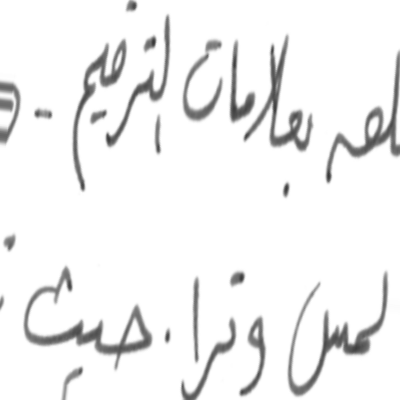 بعلامات الترقيم -
لمس وترا . حيث